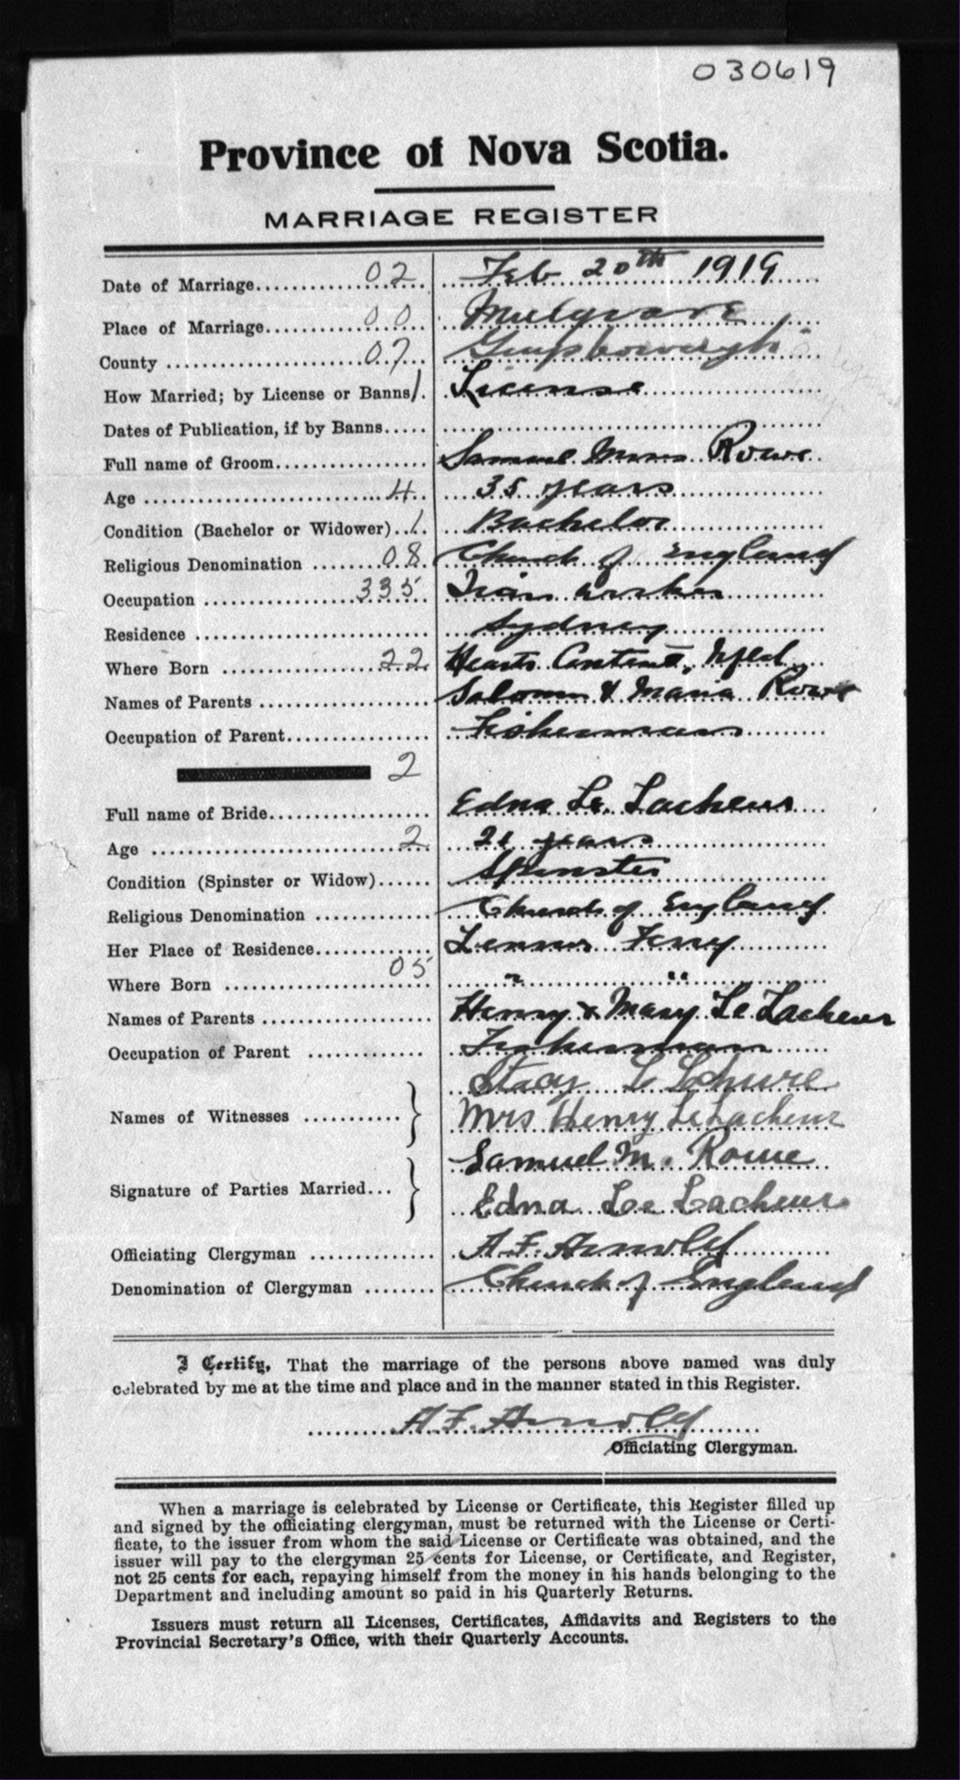 030619
Province of Nova Scotia.
MARRIAGE REGISTER
Date of Marriage 02 Feb 20th 1919
Place of Marriage 00 Mulgrave
County 07 Guysborough
How Married; by License or Banns 1 License
Dates of Publication, if by Banns
Full name of Groom Samuel Rowe
Age 4 35 years
Condition (Bachelor or Widower) 1 Bachelor
Religious Denomination 08 Church of England
Occupation 335 Iron worker
Residence Sydney
Where Born 22 Hearts Content, Nfld
Names of Parents Solomon & Maria Rowe
Occupation of Parent Fisherman
2
Full name of Bride Edna Le Lacheur
Age 2 21 years
Condition (Spinster or Widow) Spinster
Religious Denomination Church of England
Her Place of Residence Lennox Ferry
Where Born 05 " "
Names of Parents Henry & Mary Le Lacheur
Occupation of Parent Fisherman
Stacy
Names of Witnesses } Mrs Henry LeLacheur
Samuel M. Rowe
Signature of Parties Married }
Edna Le Lacheur
Officiating Clergyman A.F. Arnold
Denomination of Clergyman Church of England
I Certify, That the marriage of the persons above named was duly
celebrated by me at the time and place and in the manner stated in this Register.
A.F. Arnold
Officiating Clergyman.
When a marriage is celebrated by License or Certificate, this Register filled up
and signed by the officiating clergyman, must be returned with the License or Certi-
ficate, to the issuer from whom the said License or Certificate was obtained, and the
issuer will pay to the clergyman 25 cents for License, or Certificate, and Register,
not 25 cents for each, repaying himself from the money in his hands belonging to the
Department and including amount so paid in his Quarterly Returns.
Issuers must return all Licenses, Certificates, Affidavits and Registers to the
Provincial Secretary's Office, with their Quarterly Accounts.